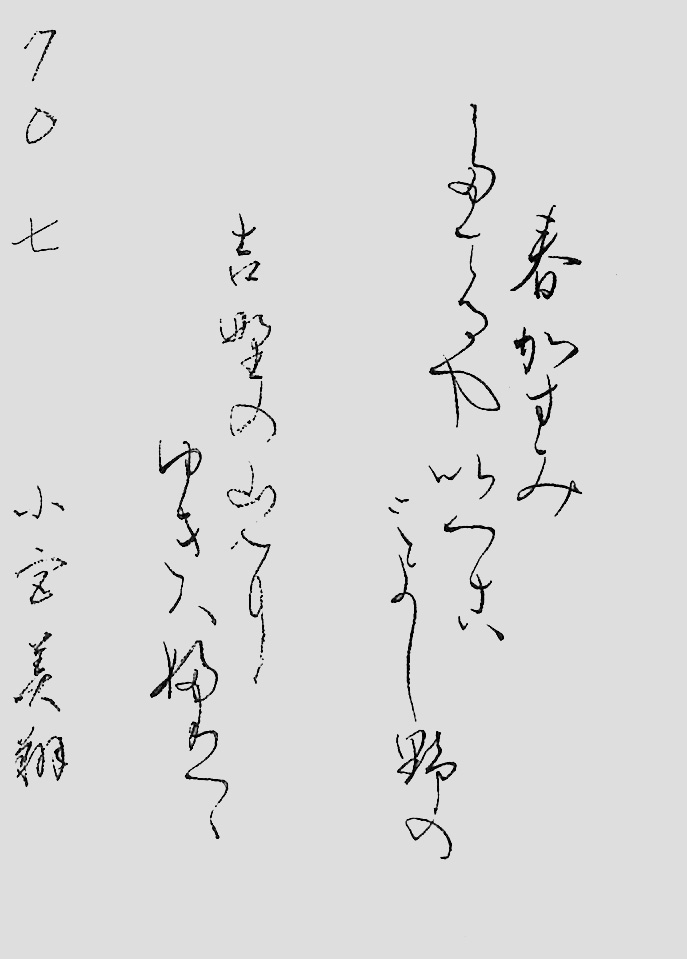 春かすみ
たてるやいつこ
みよし野の
吉野の山に
ゆきハふりつゝ
70 七 小宮美翔